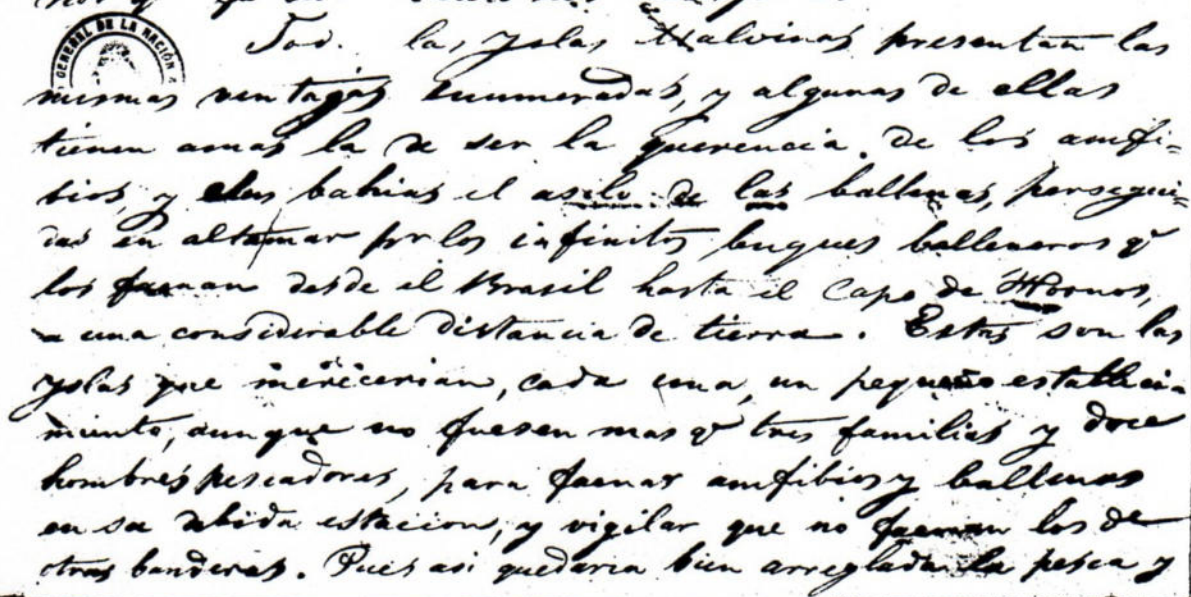 GENERAL DE LA NACIÓN
Tod. las Yslas Malvinas presentan las
mismas ventajas enumeradas, y algunas de ellas
tienen amas la de ser la querencia de los amfi=
bios, y sus bahias el asilo de las ballenas, persegui=
das en altamar pr los infinitos buques balleneros qe
los faenan desde el Brasil hasta el Capo de Hornos,
a una considerable distancia de tierra. Estas son las
Yslas que merecerian, cada una, un pequeño establecia
miento, aunque no fuesen mas qe tres familias y doce
hombres pescadores, para faenar amfibios y ballenas
en su debida estacion, y vigilar que no faenen los de
otras banderas. Pues asi quedaria bien arreglada la pesca y